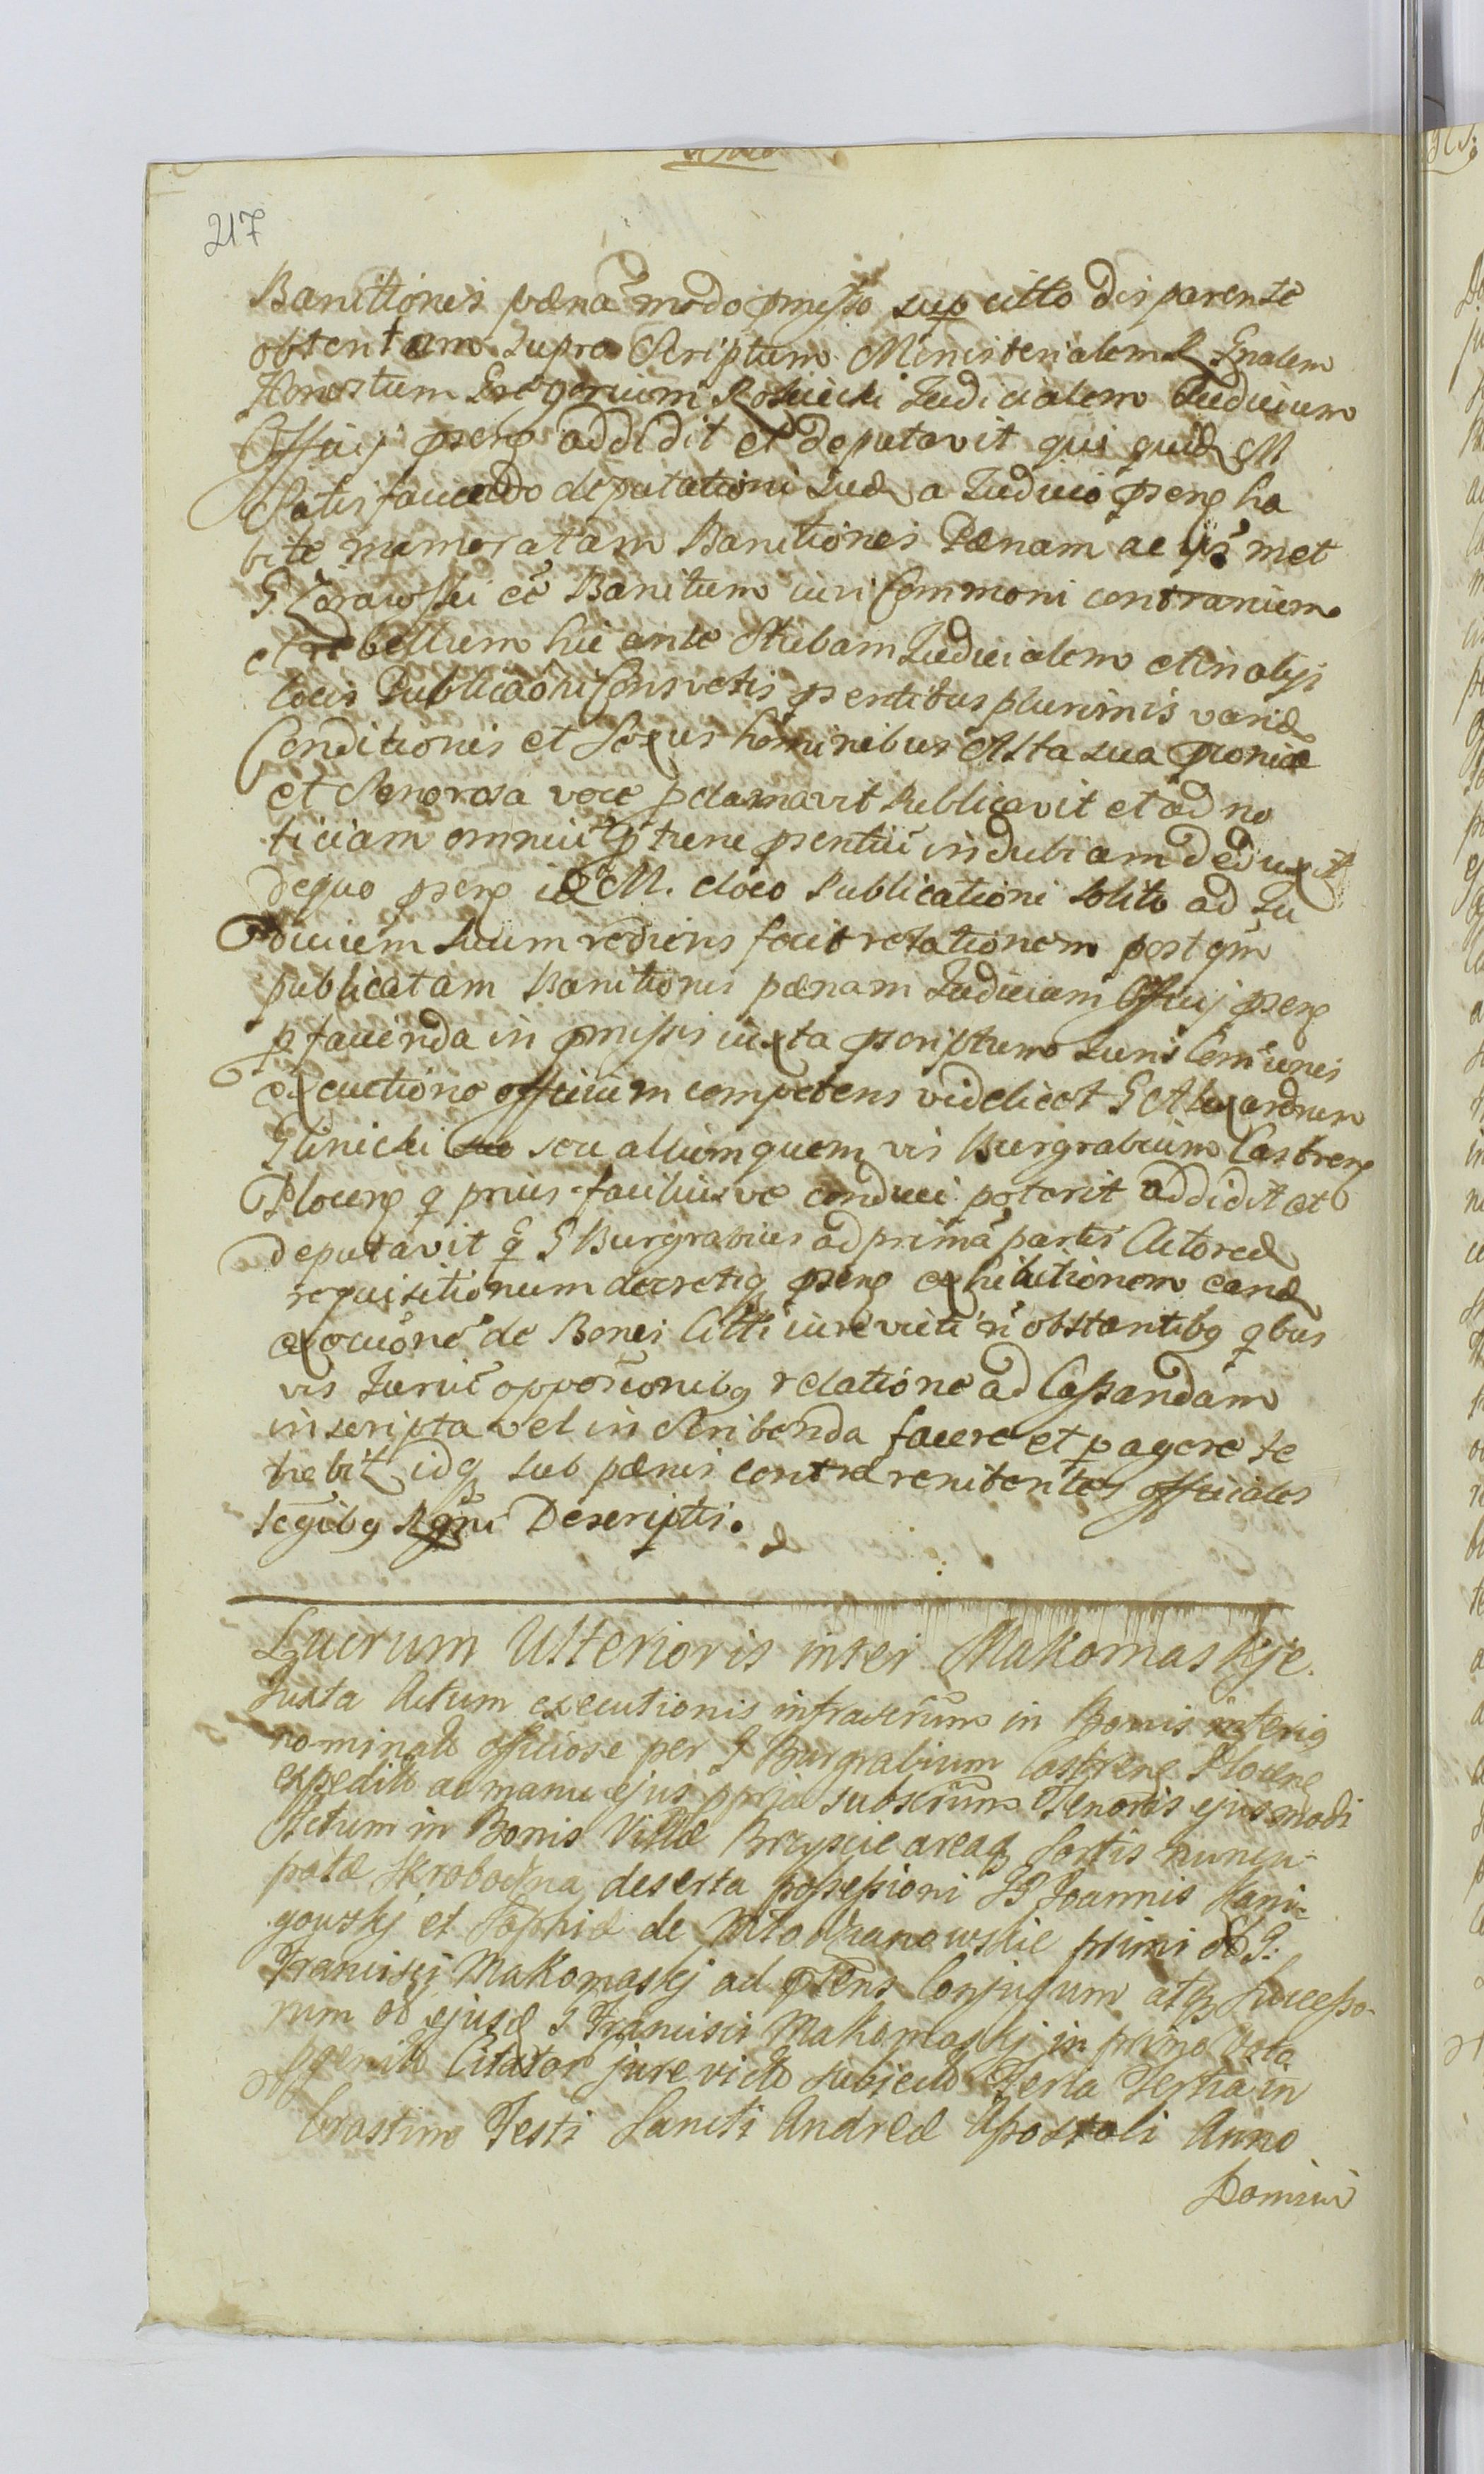 217
Banitionis pœnã modo pmisso sup citto disparente
obtentam supra Scriptum Ministerialem R Gnalem
Honestum Gregorium Rościcki Judicialem Judicium
Officij psens addidit et deputavit qui quidẽ M
Satisfaciendo deputationi suæ a Judicio psens ha
bitæ memoratam Banitionis Pœnam ac ip̃met
G Żorawski eẽ Banitum iuri Commoni contrarium
et rebellium hic ante Stubam Judicialem et in alijs
locis Publicaõni Consvetis psentibus plurimis variæ
Conditionis et Sexus hominibus Alta sua
et Sonorosa voce pclamavit Publicavit et ad no
ticiam omniũ psentiũ indubiam deduxit
de quo psens idẽ M. eloco Publicationi solito ad Ju
dicium suum rediens fecit relationem post qm̃
publicatam Banitionis pœnam Judicium Officij psens
p facienda in pmissis iuxta pscriptum Juris Com̃unis
executione officium competens videlicet G Alexandrum
Glinicki seu alium quem vis Burgrabium Castrens
Plocens q prius faciliusve conduci poterit addidit et
deputavit q G Burgrabius ad primã partis Actoreæ
requisitionem decretiq psens exhibitionem eand
execuõnẽ de Bonis Citti iure victi ñ obstantibq qbus
vis Juriũ opposiõnibq relatione ad Cassandam
inscripta vel inscribenda facere et pagere te
nebit idq sub pœnis contra renitentes officiales
legibq Rgni Descriptis.
Lucrum Ulterioris inter Makomaskje.
Juxta Actum executionis infrascrũm in Bonis interiq
nominatis officiose per G Burgrabium Castrens Plocens
expedito ac manu ejus ppria subscrũm Tenoris ejusmodi
Actum in Bonis Villæ Brzyscie areaq Sortis nuncu-
patæ Skrobodzna deserta possessioni GG Joannis Kani-
gowskj et Sophiæ de Młodzianowskie primi ol G:
Francisci Makomaskj ad psens Conjugum atq Successo-
rum ol ejusd G Francisci Makomaskj in primo Voto
pgenito Citator jure victo subjecto Feria Tertia in
Crastino Festi Sancti Andreæ Apostoli Anno
Domini